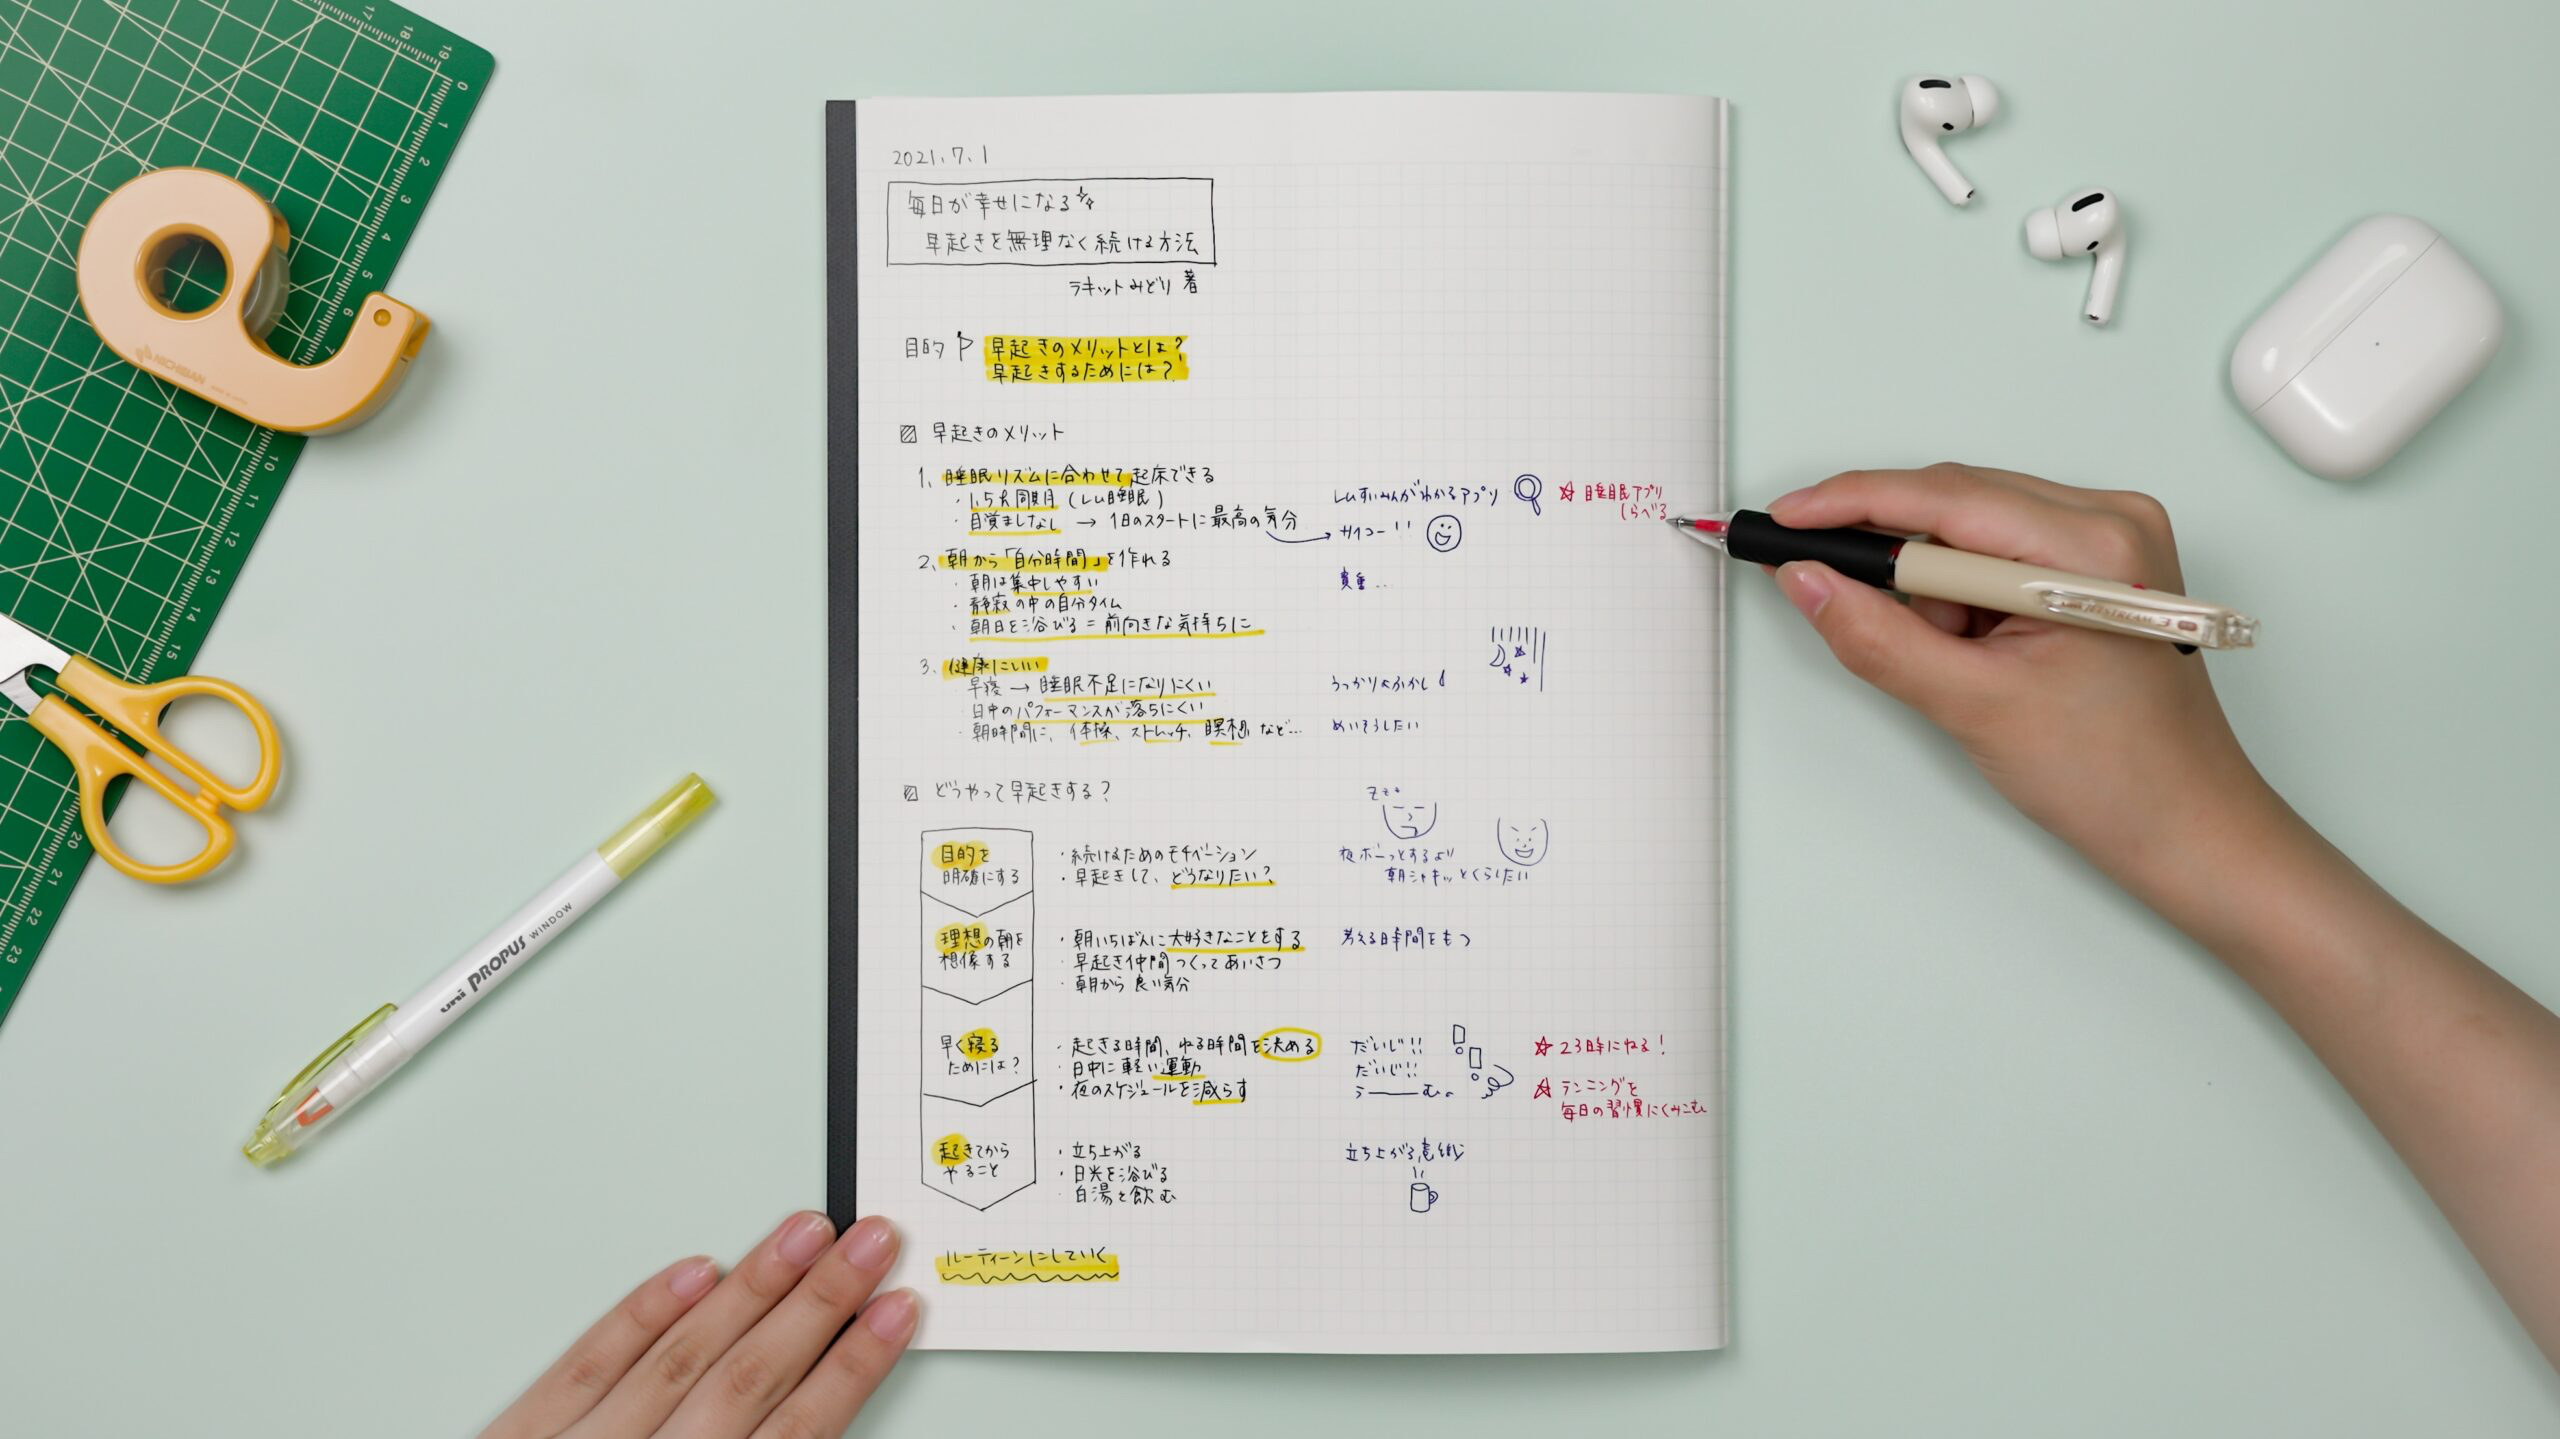 2021.7.1
毎日が幸せになる
早起きを無理なく続ける方法
ラキットみどり 著
目的 早起きのメリットとは?
早起きするためには?
早起きのメリット
1. 睡眠リズムに合わせて起床できる
・1.5h周期 (レム睡眠)
レムすいみんがわかるアプリ
☆睡眠アプリ
しらべる
・目覚ましなし → 1日のスタートに最高の気分
サイコー!!
2. 朝から「自分時間」を作れる
・朝は集中しやすい
貴重...
・静寂の中の自分タイム
・朝日を浴びる = 前向きな気持ちに
3. 健康にいい
・早寝 → 睡眠不足になりにくい
うっかりよふかし
・日中のパフォーマンスが落ちにくい
・朝時間に、体操、ストレッチ、瞑想 など...
めいそうしたい
どうやって早起きする?
zzz
目的を
明確にする
・続けるためのモチベーション
・早起きして、どうなりたい?
夜ボーっとするより
朝シャキッとくらしたい
理想の朝を
想像する
・朝いちばんに大好きなことをする
・早起き仲間つくってあいさつ
・朝から良い気分
考える時間をもつ
早く寝る
ためには?
・起きる時間、ねる時間を決める
・日中に軽い運動
・夜のスケジュールを減らす
だいじ!!
だいじ!!
う——む。
☆23時にねる!
☆ランニングを
毎日の習慣にくみこむ
起きてから
やること
・立ち上がる
・日光を浴びる
・白湯を飲む
立ち上がる意識
ルーティーンにしていく
uni PROPUS WINDOW
uni JETSTREAM 3
NICHIBAN
17
18
19
0
1
2
3
4
5
6
7
10
11
12
13
14
15
20
21
22
23